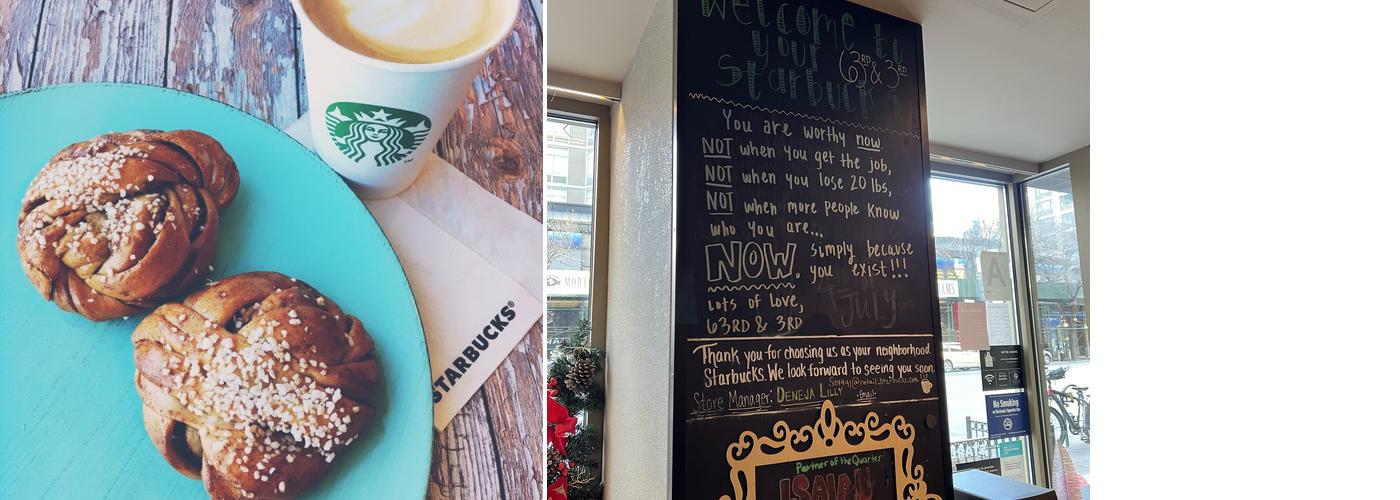 STARBUCKS®
welcome to
your 63RD & 3RD
Starbucks
You are worthy now
NOT when you get the job,
NOT when you lose 20 lbs,
NOT when more people know
who you are...
NOW. Simply because
you exist!!!
Lots of Love,
63RD & 3RD
July
Thank you for choosing us as your neighborhood
Starbucks. We look forward to seeing you soon.
Store Manager: DENEJA LILLY
Email:
Partner of the Quarter
A
No Smoking